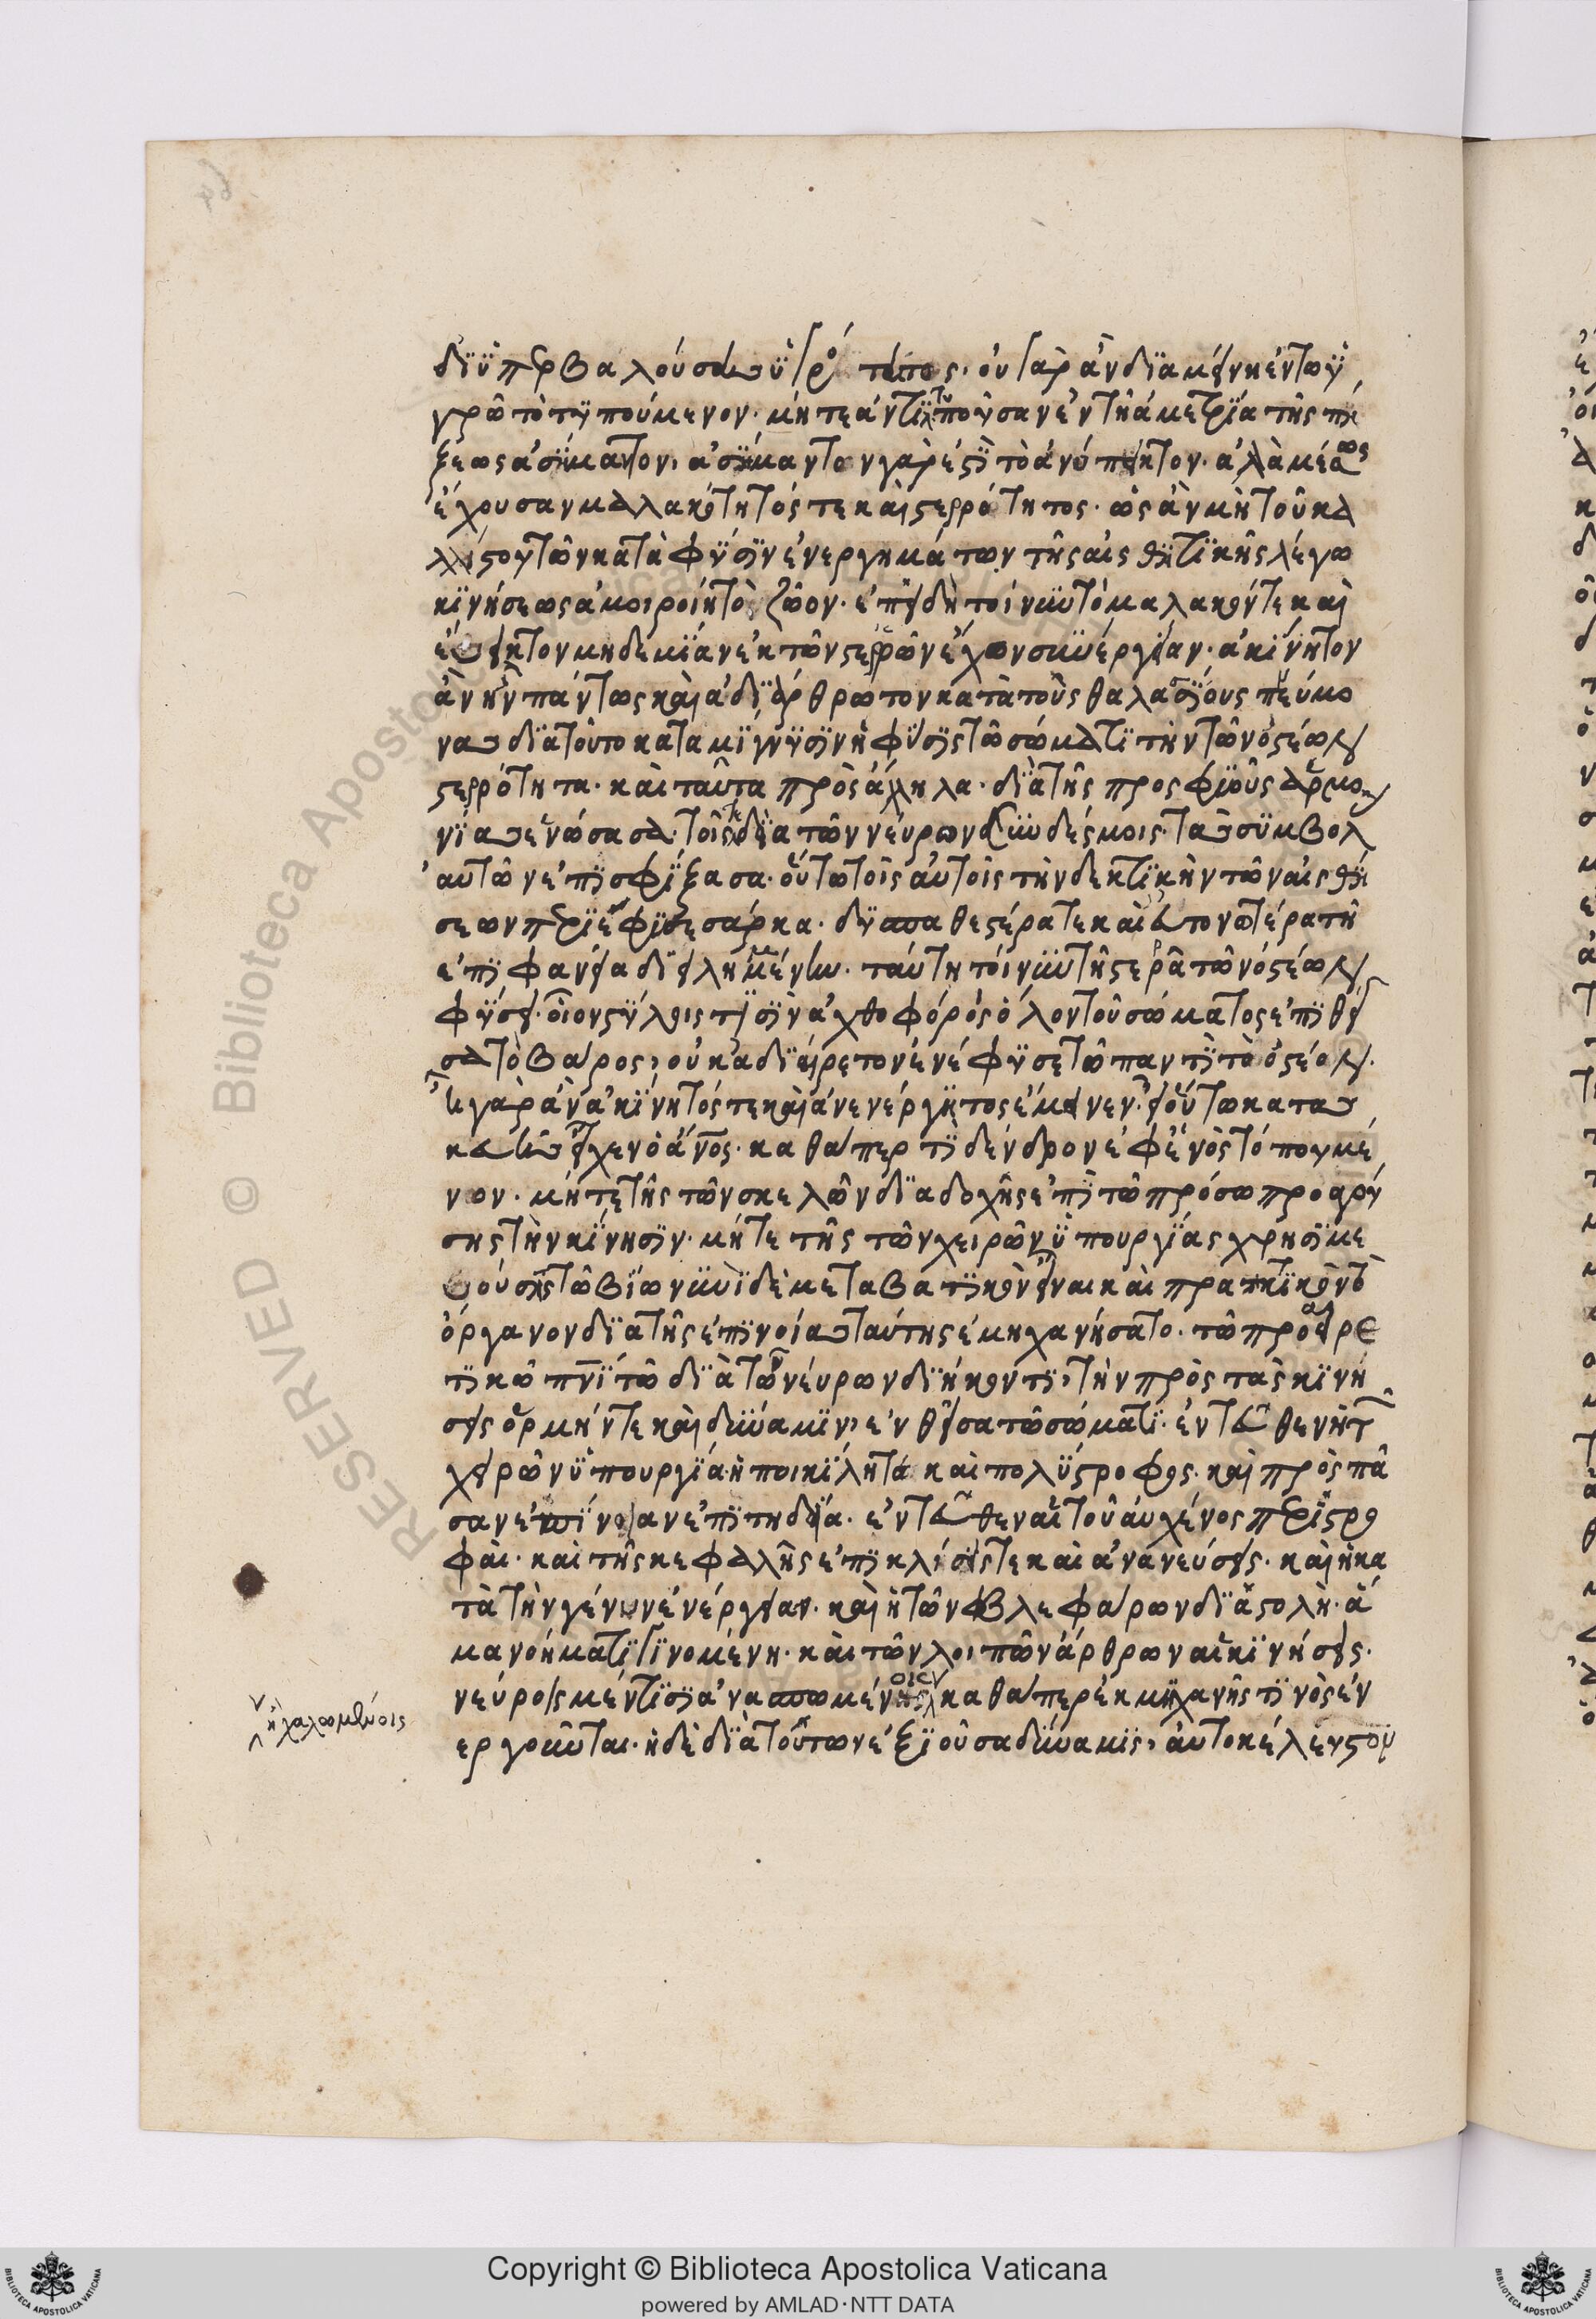 δϊ ὑπερβαλούσαν ὑγρότητος· οὐ γὰρ ἂν διαμείνη ἐν τῶ ὑ
γρῶ τὸ τυπούμενον· μήτε ἀντιτυποῦσαν ἐν τῆ ἀμετρία τῆς πή
ξεως ἀσήμαντον, ἀσήμαντον γὰρ ἐστὶ τὸ ἀνύπεικτον· ἀλλὰ μέσως
ἔχουσαν μαλακότητός τε καὶ στερρότητος· ὡς ἂν μὴ τοῦ κα
λλίστου τῶν κατὰ φύσιν ἐνεργημάτων τῆς αἰσθητικῆς λέγω
κινήσεως ἀμοιροίη τὸ ζῶον· ἐπειδὴ τοίνυν τὸ μαλακόν τε καὶ
εὔεικτον μηδεμίαν ἐκ τῶν στερρῶν ἔχων συνεργίαν· ἀκίνητον
ἂν ἦν πάντως καὶ ἀδιάρθρωτον κατὰ τοὺς θαλασσίους πνεύμο
νας διὰ τοῦτο καταμίγνυσιν ἡ φύσις τῶ σώματι τὴν τῶν ὀστέων
στερρότητα· καὶ ταῦτα πρὸς ἄλληλα· διὰ τῆς προσφυοῦς ἁρμο
νίας ἑνώσασα· τοῖς τε διὰ τῶν νεύρων συνδέσμοις τὰς συμβολ
αὐτῶν ἐπισφίξασα· οὕτω τοῖς αὐτοῖς τὴν δεκτικὴν τῶν αἰσθή
σεων περιέφυσε σάρκα· δυσπαθεστέρα τε καὶ εὐτονωτέρα τῆ
ἐπιφανεία διειλημμένην· ταύτη τοίνυν τῆ στερρᾶ τῶν ὀστέων
φύσει· οἷον στύλοις τισὶν ἀχθοφόροις ὅλον τοῦ σώματος ἐπιθεῖ
σα τὸ βάρος, οὐκ ἀδιαίρετον ἐνέφυσε τῶ παντὶ τὸ ὀστέον·
ἦ γὰρ ἂν ἀκίνητός τε καὶ ἀνενέργητος ἔμεινεν· εἰ οὕτω κατα
σκευῆς εἶχεν ὁ ἄνος· καθάπερ τι δένδρον ἐφ' ἑνὸς τόπου μέ
νον· μήτε τῆς τῶν σκελῶν διαδοχῆς ἐπὶ τῶ πρόσω προαγού
σης τὴν κίνησιν· μήτε τῆς τῶν χειρῶν ὑπουργίας χρησιμε
ούσης τῶ βίω νυνὶ δὲ μεταβατικὸν εἶναι καὶ πρακτικὸν τὸ
ὄργανον διὰ τῆς ἐπινοίας ταύτης ἐμηχανήσατο· τῶ προαιρε
τικῶ πνι τῶ διὰ τῶν νεύρων διήκοντι, τὴν πρὸς τὰς κινή
σεις ὁρμήν τε καὶ δύναμιν, ἐνθεῖσα τῶ σώματι· ἐντεῦθεν ἡ τ
χειρῶν ὑπουργία ἡ ποικίλη τὰ καὶ πολύστροφος· καὶ πρὸς πᾶ
σαν ἐπίνοιαν ἐπιτηδεία· ἐντεῦθεν αἱ τοῦ αὐχένος περιστρο
φαὶ· καὶ τῆς κεφαλῆς ἐπικλήσεις τε καὶ ἀνανεύσεις· καὶ ἡ κα
τὰ τὴν γένυν ἐνέργειαν· καὶ ἡ τῶν βλεφάρων διαστολὴ· ἅ
μα νοήματι γινομένη· καὶ τῶν λοιπῶν ἄρθρων αἱ κινήσεις·
νεύροις μέν τισιν ἀνασπωμένοις καθάπερ ἐκ μηχανῆς τινὸς ἐν
εργοῦνται· ἡ δὲ διὰ τούτων ἐξιοῦσα δύναμις, αὐτοκέλευστον
ἢ χαλωμένοις
Copyright © Biblioteca Apostolica Vaticana
powered by AMLAD·NTT DATA
RESERVED © Biblioteca Apostolica